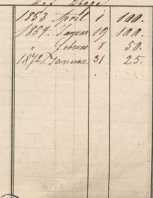 1853 April 1 100.
1859. Januar 19 100.
" Februar 8 50.
1872 Januar 31 25.